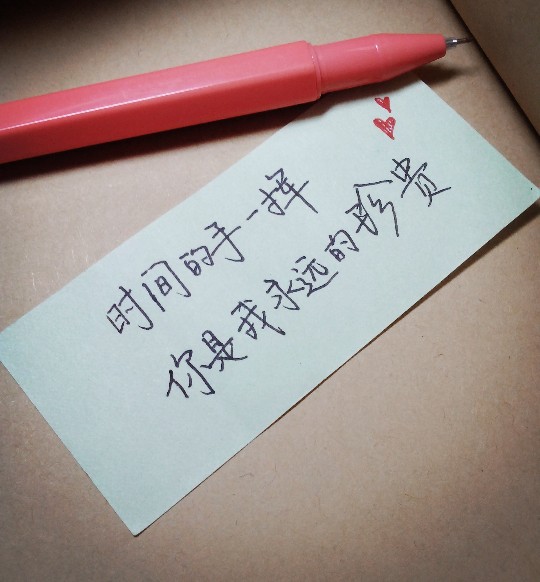 时间的手一挥
你是我永远的珍贵